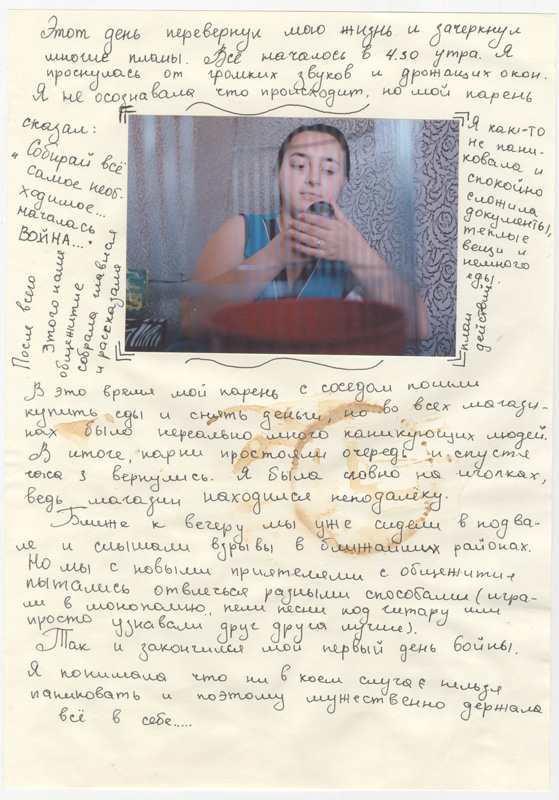 Этот день перевернул мою жизнь и зачеркнул
многие планы. Всё началось в 4.30 утра. Я
проснулась от громких звуков и дрожащих окон.
Я не осознавала что происходит, но мой парень
сказал:
"Собирай всё
самое необ-
ходимое...
началась
ВОЙНА..."
После всего
этого наше
общежитие
собрала главная
и рассказала
план
действий
Я как-то
не пани-
ковала и
спокойно
сложила
документы,
тёплые
вещи и
немного
еды.
В это время мой парень с соседом пошли
купить еды и снять деньги, но во всех магази-
нах было нереально много паникующих людей.
В итоге, парни простояли очередь и спустя
часа 3 вернулись. Я была словно на иголках,
ведь магазин находился неподалёку.
Ближе к вечеру мы уже сидели в подва-
ле и слышали взрывы в ближайших районах.
Но мы с новыми приятелями с общежития
пытались отвлечься разными способами (игра-
ли в монополию, пели песни под гитару или
просто узнавали друг друга лучше).
Так и закончился мой первый день войны.
Я понимала что ни в коем случае нельзя
паниковать и поэтому мужественно держала
всё в себе.....